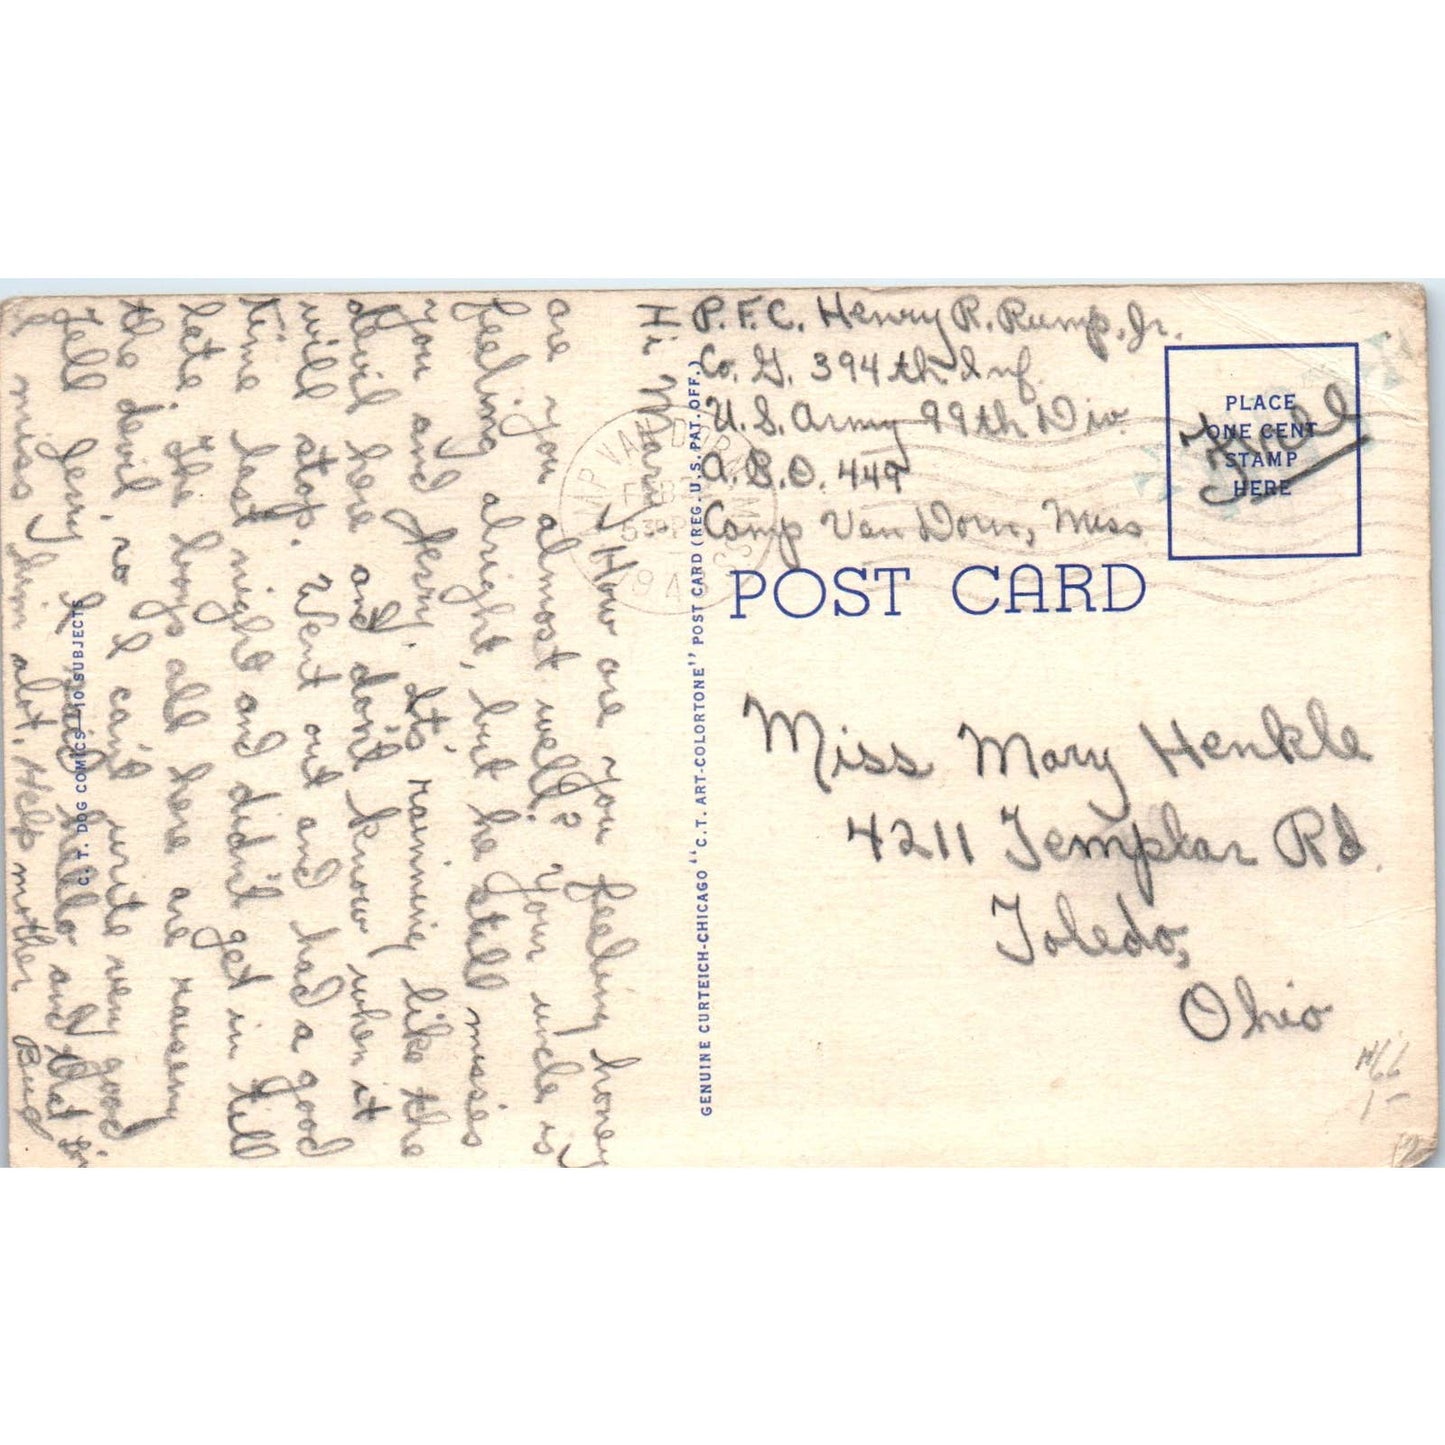 P.F.C. Henry R. Rump, Jr.
Co. G. 394th Inf.
U.S. Army 99th Div.
A.P.O. 449
Camp Van Dorn, Miss
PLACE
ONE CENT
STAMP
HERE
Free
POST CARD
Miss Mary Henkle
4211 Templar Rd.
Toledo,
Ohio
Hi Mary,
How are you feeling honey
are you almost well? Your uncle is
feeling alright, but he still misses
you and Jerry. It's raining like the
devil here and don't know when it
will stop. Went out and had a good
time last night and didn't get in till
late. The boys all here are raiseng
the devil, so I can't write very good
Tell Jerry I said hello and that I
miss him alot. Help mother
Bud
CAMP VAN DORN
FEB
530 PM
194
MISS
GENUINE CURTEICH-CHICAGO "C.T. ART-COLORTONE" POST CARD (REG. U.S. PAT. OFF.)
C. T. DOG COMICS—10 SUBJECTS
1-